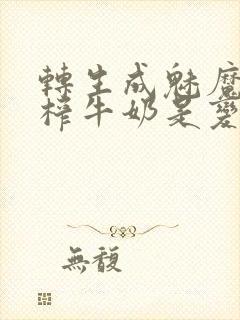 轉生成魅魔
榨牛奶是變
無馥